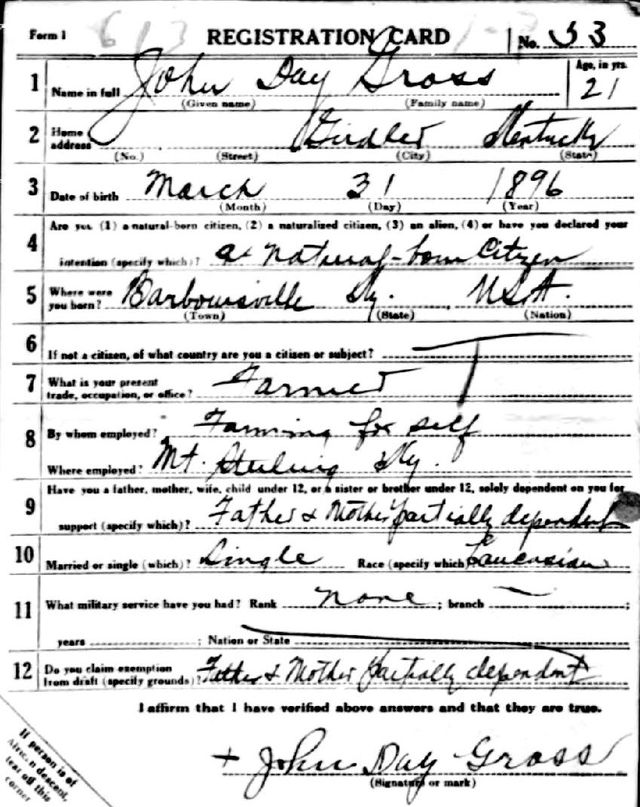 Form 1 613 REGISTRATION CARD No. 53
1 Name in full John Day Gross Age, in yrs. 21
(Given name) (Family name)
2 Home address Girdler Kentucky
(No.) (Street) (City) (State)
3 Date of birth March 31 1896
(Month) (Day) (Year)
4 Are you (1) a natural-born citizen, (2) a naturalized citizen, (3) an alien, (4) or have you declared your
intention (specify which)? a natural-born Citizen
5 Where were you born? Barboursville Ky. U.S.A.
(Town) (State) (Nation)
6 If not a citizen, of what country are you a citizen or subject?
7 What is your present trade, occupation, or office? Farmer
8 By whom employed? Farming for self
Where employed? Mt. Sterling Ky.
9 Have you a father, mother, wife, child under 12, or a sister or brother under 12, solely dependent on you for
support (specify which)? Father & Mother partially dependent
10 Married or single (which)? Single Race (specify which) Caucasian
11 What military service have you had? Rank none ; branch — ;
years ; Nation or State
12 Do you claim exemption from draft (specify grounds)? Father & Mother partially dependent
I affirm that I have verified above answers and that they are true.
+ John Day Gross
(Signature or mark)
If person is of
African descent,
tear off this
corner